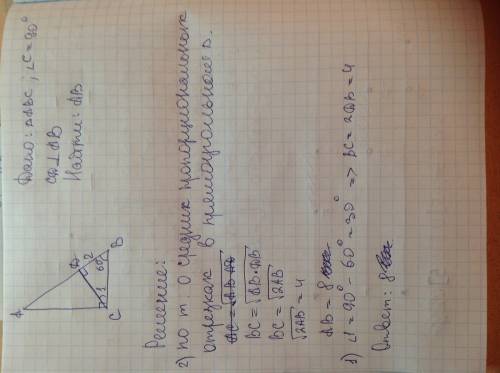 Дано: ΔABC; ∠C=90°
CD⊥AB
Найти: AB
A
D
2
60°
B
1
C
Решение:
2) по т. о средних пропорциональных
отрезках в прямоугольном Δ.
BC=√AB·DB
BC=√2AB
√2AB=4
AB=8
1) ∠1=90°-60°=30° => BC=2DB=4
Ответ: 8